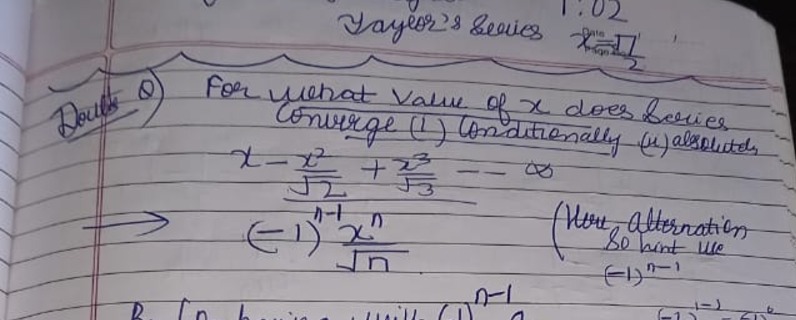 1:02
Tayler's Series x = π/2
Doubt Q) For what value of x does Series
Converge (i) Conditionally (ii) absolutely
x - x²/√2 + x³/√3 -- ∞
→ (-1)ⁿ⁻¹ xⁿ/√n
(Here, alternation
so hint use
(-1)ⁿ⁻¹
n-1